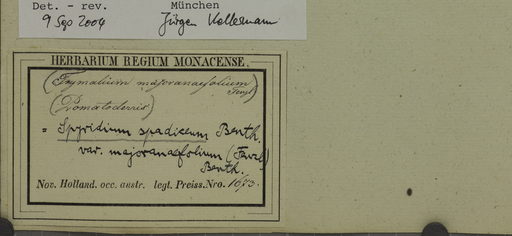 Det. – rev. München
9 Sep 2004 Jürgen Kellermann
HERBARIUM REGIUM MONACENSE.
(Trymalium majoranaefolium Fenzl)
(Pomatoderris)
= Spyridium spadiceum Benth.
var. majoranaefolium (Fenzl)
Benth.
Nov. Holland. occ. austr. legt. Preiss. Nro. 1673.